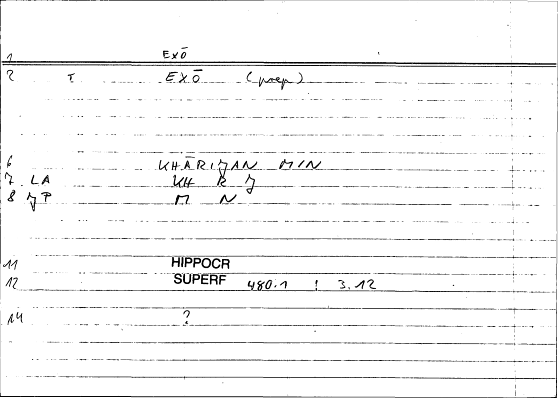 1 EXŌ
2 T. EXŌ (prep)
6 KHĀRIJAN MIN
7 LA KH R J
8 JP M N
11 HIPPOCR
12 SUPERF 480.1 ! 3.12
14 ?